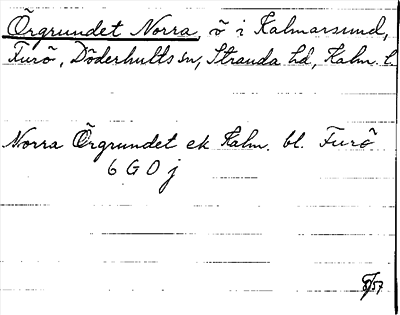 Örgrundet Norra, ö i Kalmarsund,
Furö, Döderhults sn, Stranda hd, Kalm. l.
Norra Örgrundet ek Kalm. bl. Furö
6 G 0 j